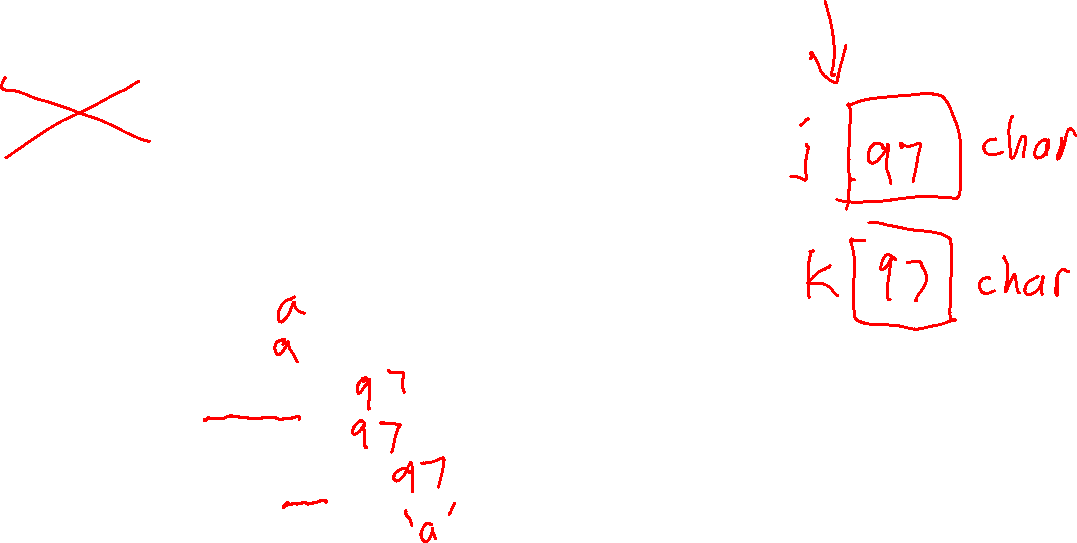 j 97 char
k 97 char
a
a
97
97
97
'a'